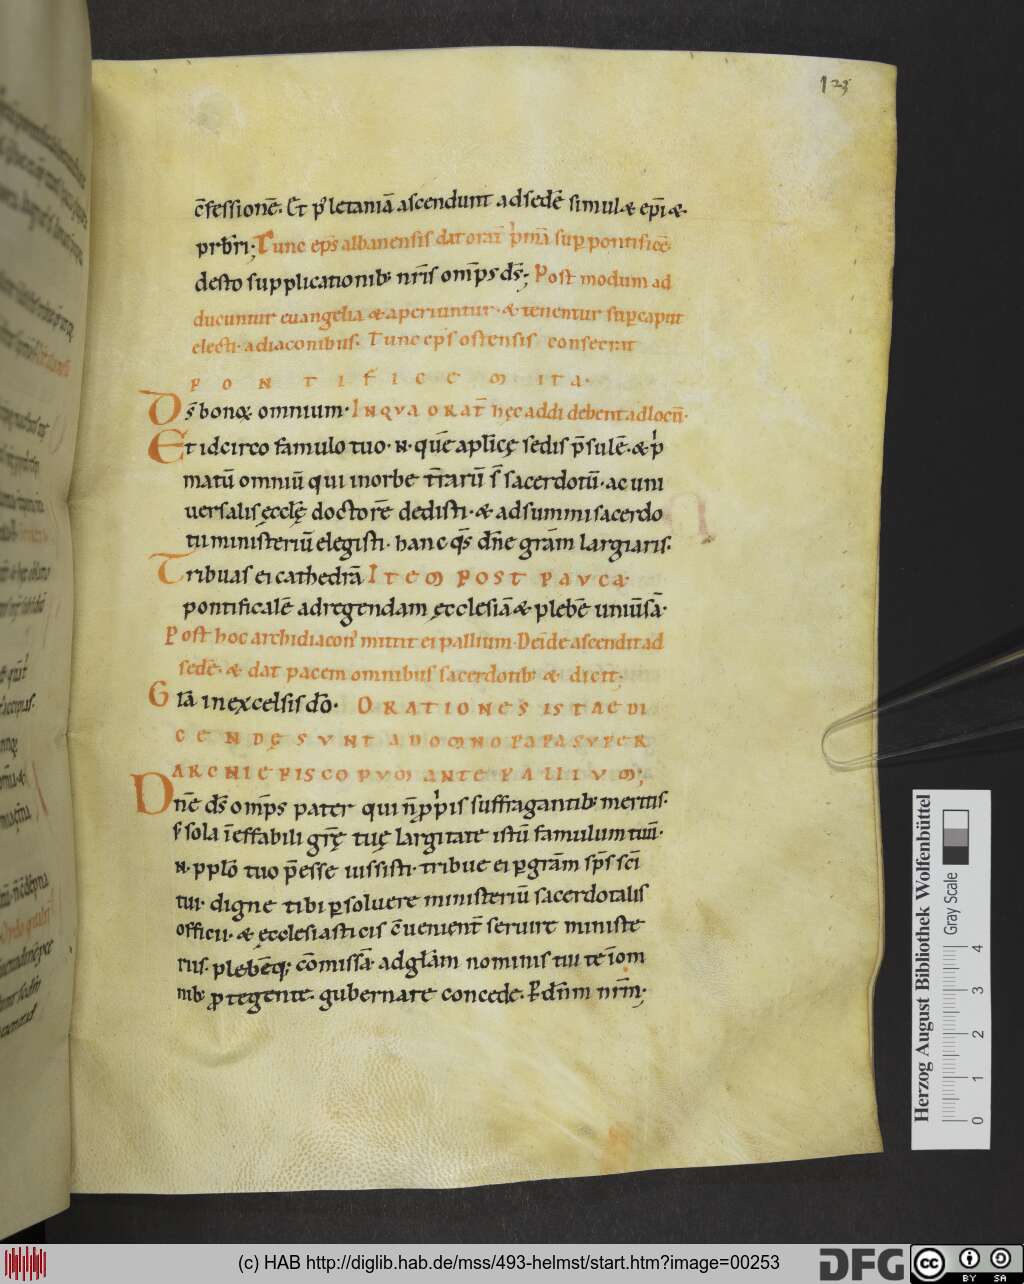 123
c̄fessionē. Et p' letaniā ascendunt ad sedē simul & ep̄i &
prb̄ri; Tunc ep̄s albanensis dat orat̄ p'mā sup pontificē.
desto supplicationib; nr̄is om̄ps d̄s; Post modum ad
ducuntur euangelia & aperiuntur. & tenentur sup caput
electi. a diaconibus. Tunc ep̄s ostensis consecrat
PONTIFICEM ITA.
D̄s bonoꝝ omnium. INQVA ORAT̄ hęc addi debent ad locū.
Et idcirco famulo tuo. N. quē aplicę sedis p̄sulē. & p'
matū omniū qui in orbe t̄rarū s̄ sacerdotū. ac uni
uersalis ęcclę doctorē dedisti. & ad summi sacerdo
tii ministeriū elegisti. hanc q̄s dn̄e grām largiaris.
Tribuas ei cathedrā ITEM POST PAUCA.
pontificalē ad regendam ęcclesiā & plebē uniūsā.
Post hoc archidiacon' mittit ei pallium. Deīde ascendit ad
sedē. & dat pacem omnibus sacerdotib; & dicit;
Gl̄a in excelsis d̄o. ORATIONES ISTAE DI
CENDĘ SUNT A DOMNO PAPA SUPER
ARCHIEPISCOPUM ANTE PALLIUM;
Dn̄e d̄s om̄ps pater qui n̄ p̱p'is suffragantib; meritis.
s̄ sola īeffabili gr̄ę tuę largitate istū famulum tuū.
N. pplō tuo p̄esse iussisti. tribue ei ꝑ grām sp̄s sc̄i
tui. digne tibi ꝑsoluere ministeriū sacerdotalis
officii. & ęcclesiasticis c̄uenient̄ seruire ministe
riis. plebēq; cōmissā. ad glām nominis tui te ī om
nib; protegente. gubernare concede. P dn̄m nr̄m.
Herzog August Bibliothek Wolfenbüttel
Gray Scale
0 1 2 3 4
(c) HAB http://diglib.hab.de/mss/493-helmst/start.htm?image=00253
DFG
cc BY SA